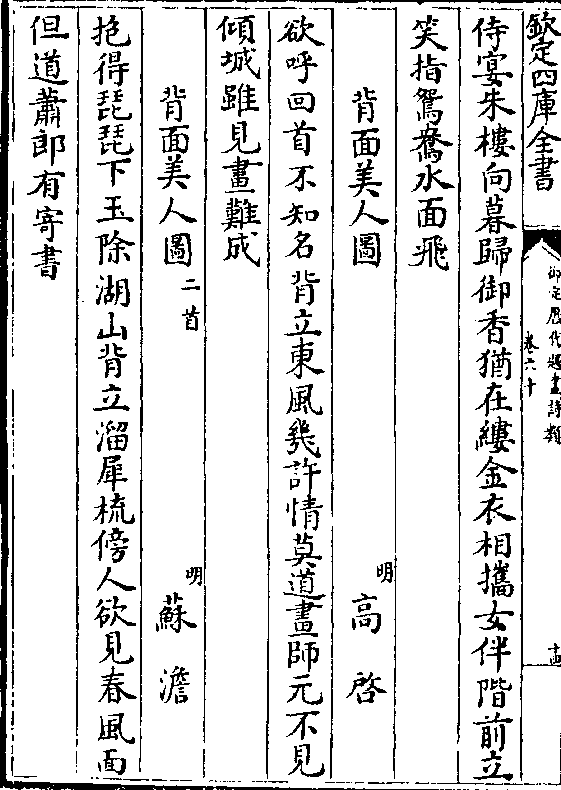 欽定四庫全書
御定歷代題畫詩類
卷六十
十四
侍宴朱樓向暮歸御香猶在縷金衣相攜女伴階前立
笑指鴛鴦水面飛
背面美人圖 明 高啓
欲呼回首不知名背立東風幾許情莫道畫師元不見
傾城雖見畫難成
背面美人圖二首 明 蘇澹
抱得琵琶下玉除湖山背立溜犀梳傍人欲見春風面
但道蕭郎有寄書